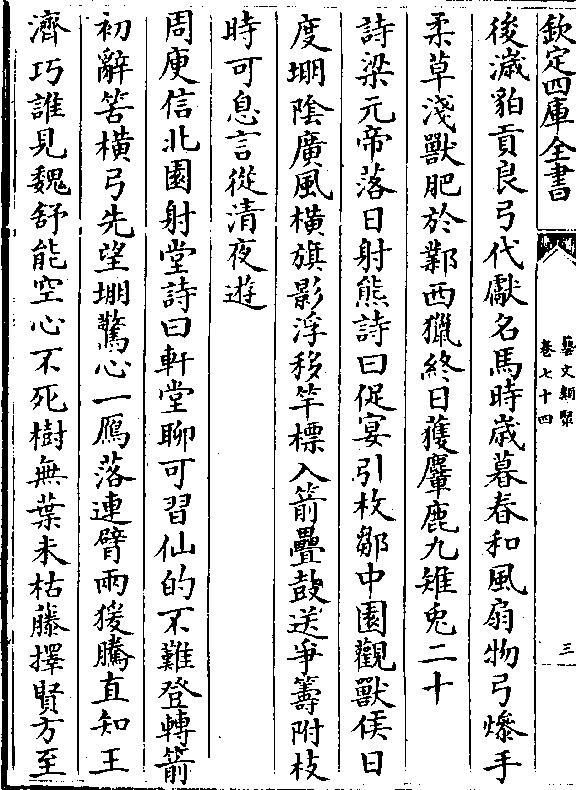 欽定四庫全書
藝文類聚
卷七十四
三
後濊貊貢良弓代獻名馬時歲暮春和風扇物弓燥手
柔草淺獸肥於鄴西獵終日獲麞鹿九雉兎二十
詩梁元帝落日射熊詩曰促宴引枚鄒中園觀獸侯日
度堋陰廣風橫旗影浮移竿標入箭疊鼓送爭籌附枝
時可息言從清夜遊
周庾信北園射堂詩曰軒堂聊可習仙的不難登轉箭
初辭筈橫弓先望堋驚心一鴈落連臂兩猨騰直知王
濟巧誰見魏舒能空心不死樹無葉未枯藤擇賢方至